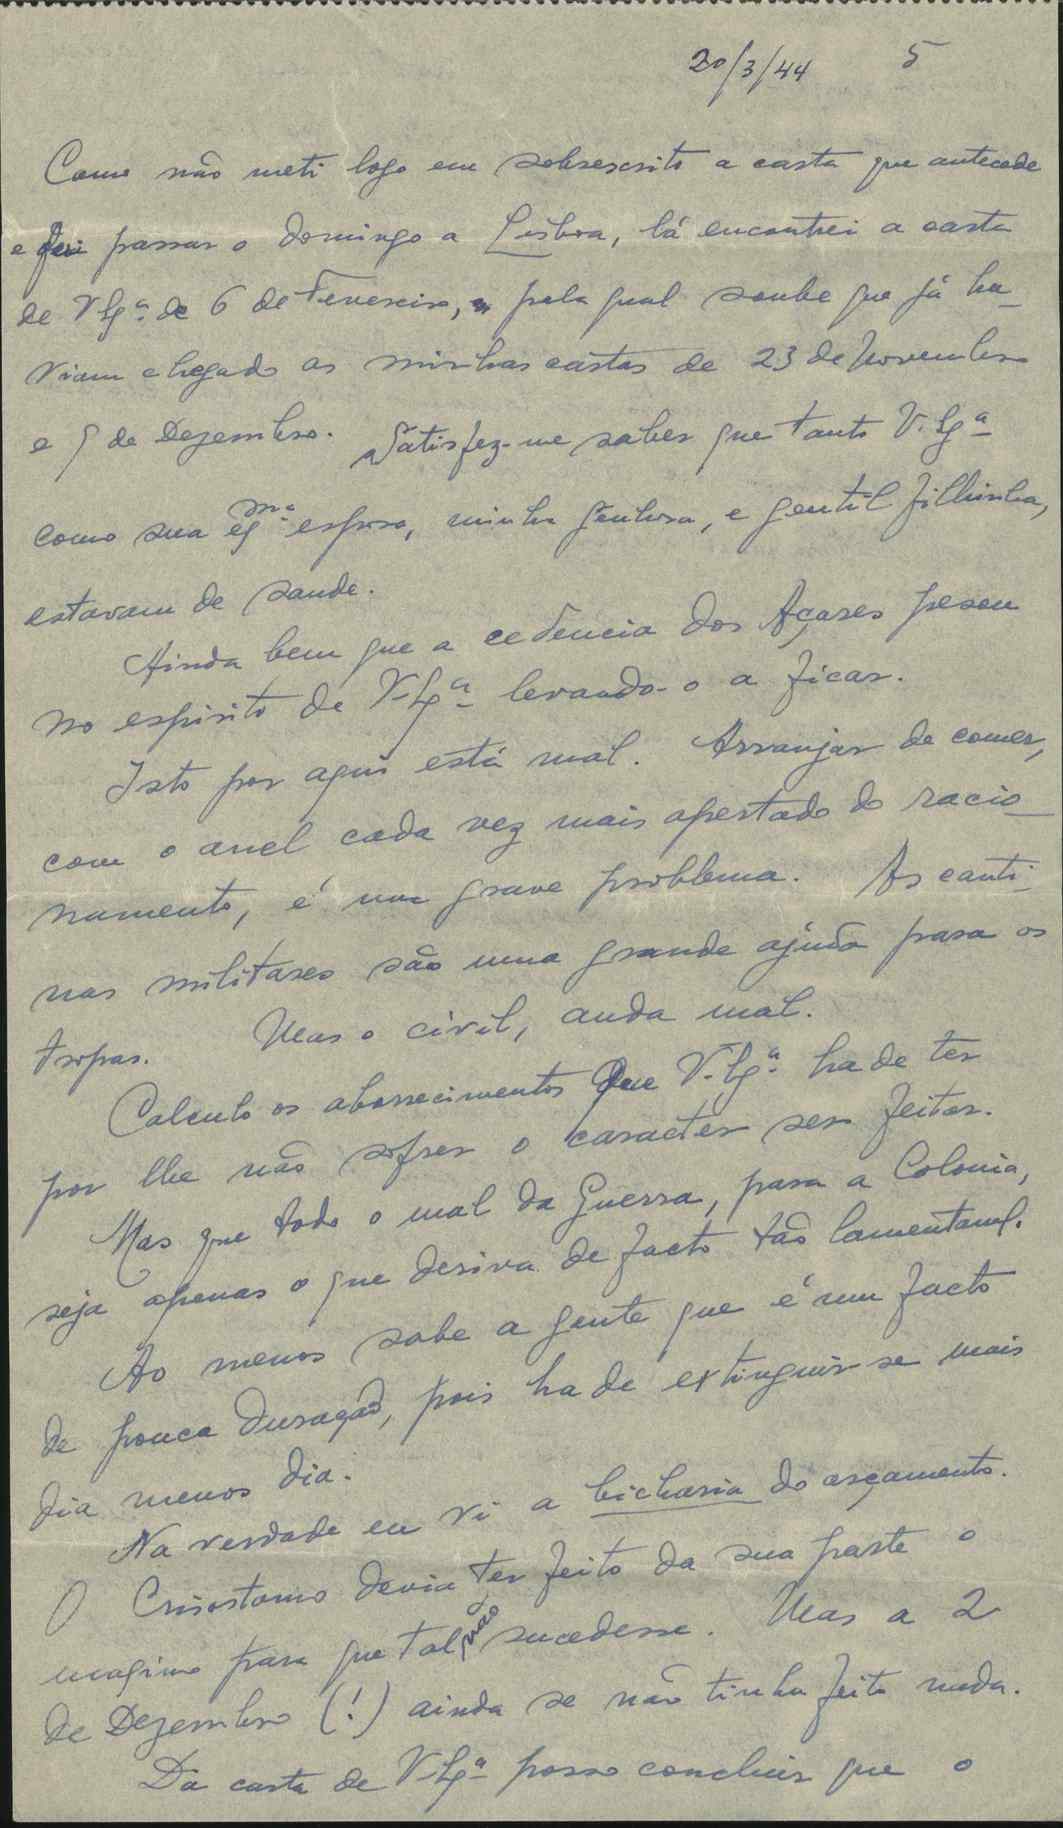 20/3/44 5
Como não meti logo em sobrescrito a carta que antecede
e fui passar o domingo a Lisboa, lá encontrei a carta
de V. Exª. de 6 de Fevereiro, pela qual soube que já ha-
viam chegado as minhas cartas de 23 de Novembro
e 9 de Dezembro. Satisfez-me saber que tanto V. Exª
como sua exma esposa, minha Senhora, e gentil filhinha,
estavam de saude.
Ainda bem que a cedencia dos Açores pesou
no espirito de V. Exª levando-o a ficar.
Isto por aqui está mal. Arranjar de comer,
com o anel cada vez mais apertado do racio-
namento, é um grave problema. As canti-
nas militares são uma grande ajuda para os
tropas. Mas o civil, anda mal.
Calculo os aborrecimentos que V. Exª. ha de ter
por lhe não sofrer o caracter ser feitor.
Mas que todo o mal da Guerra, para a Colonia,
seja apenas o que deriva de facto tão lamentavel.
Ao menos sabe a gente que é um facto
de pouca duração, pois ha de extinguir-se mais
dia menos dia.
Na verdade eu vi a bicharia do orçamento.
O Crisostomo devia ter feito da sua parte o
maximo para que tal não sucedesse. Mas a 2
de Dezembro (!) ainda se não tinha feito nada.
Da carta de V. Exª posso concluir que o